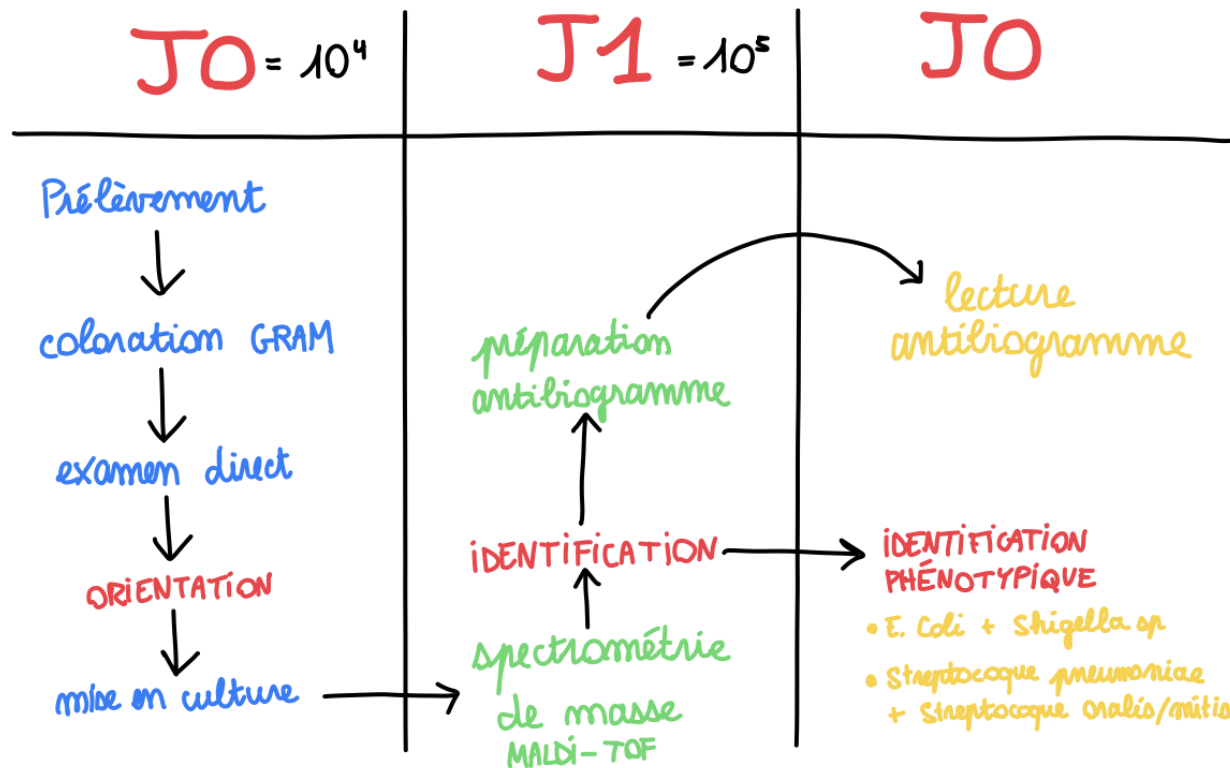 J0 = 10⁴
J1 = 10⁵
J0
Prélèvement
coloration GRAM
examen direct
ORIENTATION
mise en culture
préparation
antibiogramme
IDENTIFICATION
spectrométrie
de masse
MALDI-TOF
lecture
antibiogramme
IDENTIFICATION
PHÉNOTYPIQUE
• E. Coli + Shigella sp
• Streptocoque pneumoniae
+ Streptocoque oralis/mitis